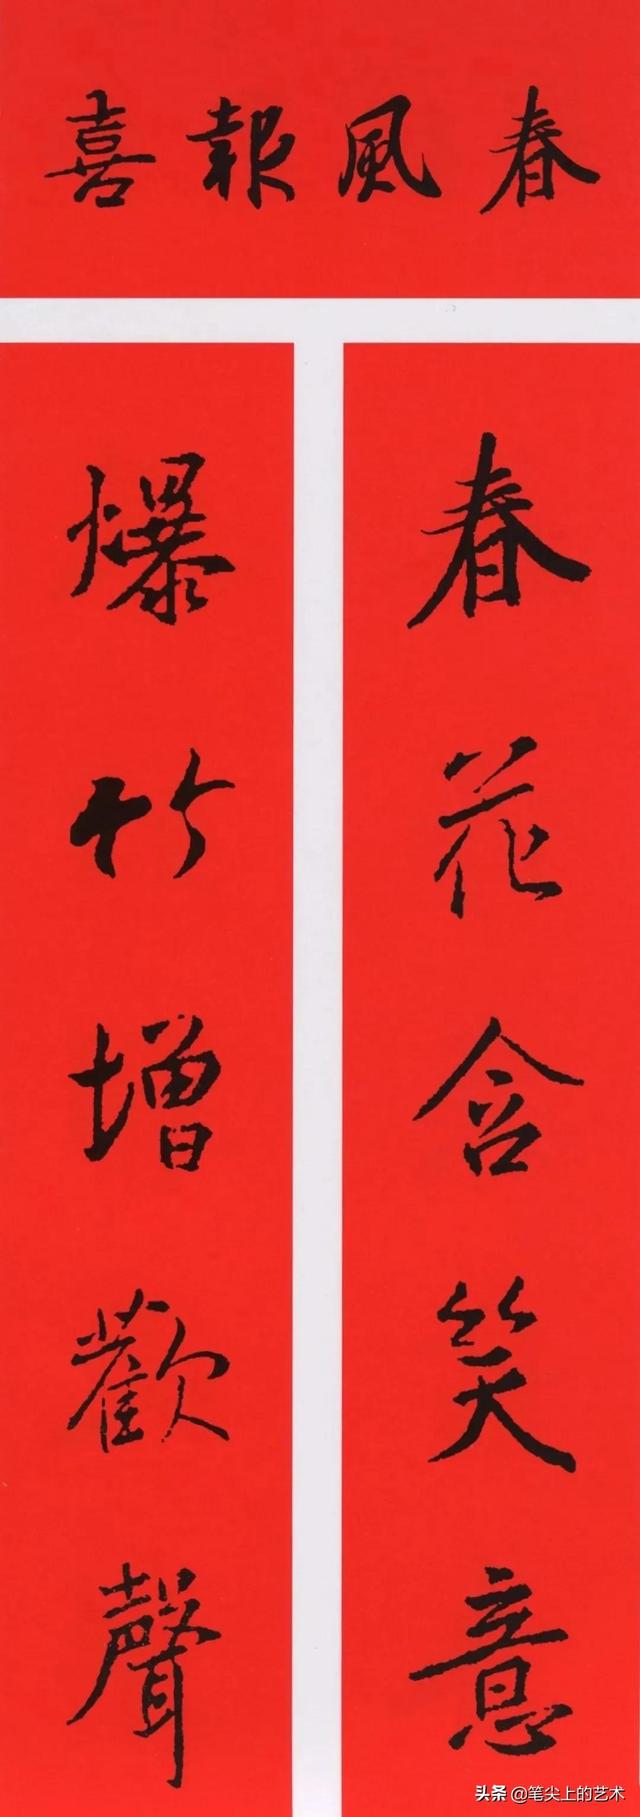 春風報喜
春花含笑意
爆竹增歡聲
头条 @笔尖上的艺术